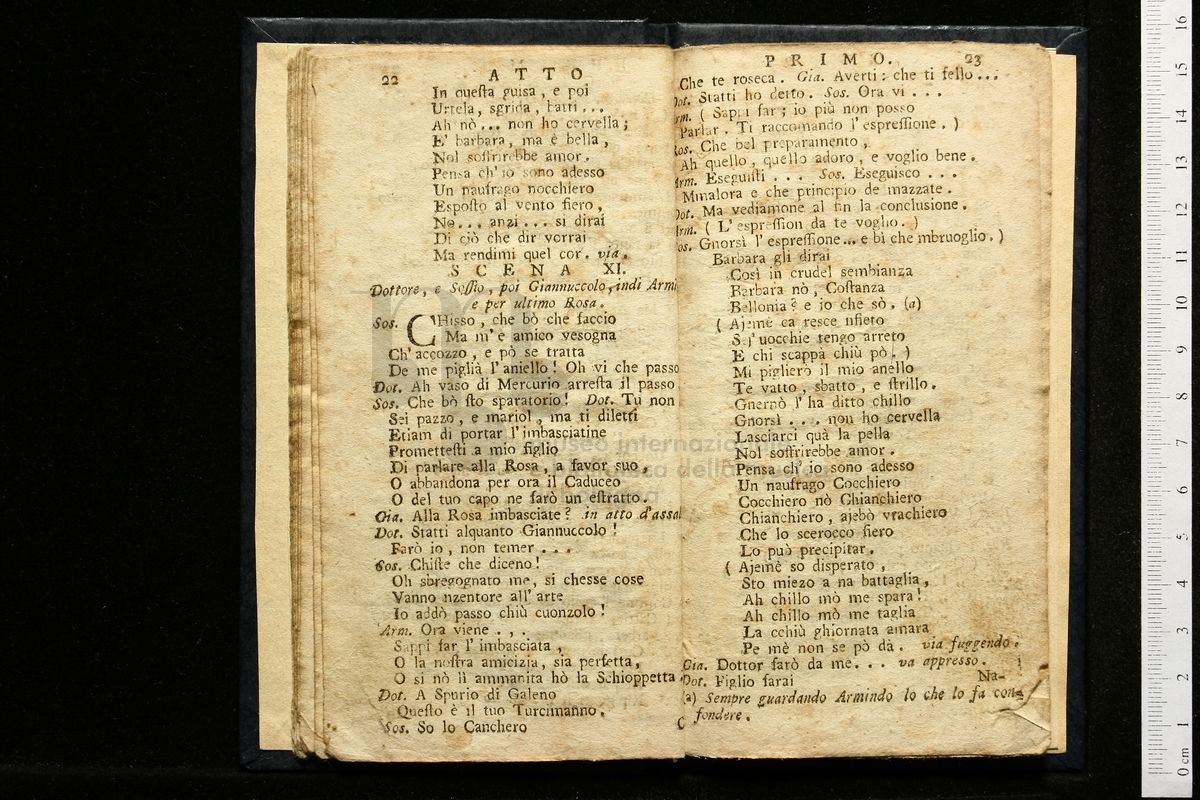 22
ATTO
In questa guisa, e poi
Urtela, sgrida, batti...
Ah nò... non ho cervella;
E' barbara, ma è bella,
Nol soffrirebbe amor.
Pensa ch'io sono adesso
Un naufrago nocchiero
Esposto al vento fiero,
No... anzi... si dirai
Di ciò che dir vorrai
Ma rendimi quel cor. via.
SCENA XI.
Dottore, e Sossio, poi Giannuccolo, indi Arm
e per ultimo Rosa.
Sos. CHisso, che bò che faccio
Ma m'è amico vesogna
Ch'accozzo, e pò se tratta
De me piglià l'aniello! Oh vi che passo
Dot. Ah vaso di Mercurio arresta il passo
Sos. Che bò sto sparatorio! Dot. Tu non
Sei pazzo, e mariol, ma ti diletti
Etiam di portar l'imbasciatine
Promettesti a mio figlio
Di parlare alla Rosa, a favor suo,
O abbandona per ora il Caduceo
O del tuo capo ne farò un estratto.
Gia. Alla Rosa imbasciate? in atto d'assal
Dot. Statti alquanto Giannuccolo!
Farò io, non temer...
Sos. Chiste che diceno!
Oh sbregognato me, si chesse cose
Vanno nzentore all'arte
Io addò passo chiù cuonzolo!
Arm. Ora viene...
Sappi far l'imbasciata,
O la nostra amicizia, sia perfetta,
O si nò lì ammanita hò la Schioppetta
Dot. A Spurio di Galeno
Questo è il tuo Turcimanno.
Sos. So lo Canchero
PRIMO. 23
Che te roseca. Gia. Averti: che ti fello...
Dot. Statti ho detto. Sos. Ora vi...
Arm. (Sappi far; io più non posso
Parlar. Ti raccomando l'espressione.)
Sos. Che bel preparamento,
Ah quello, quello adoro, e voglio bene.
Arm. Eseguisti... Sos. Eseguisco...
Mmalora e che principio de mazzate.
Dot. Ma vediamone al fin la conclusione.
Arm. (L'espression da te voglio.)
Sos. Gnorsì l'espressione... e bì che mbruoglio.)
Barbara gli dirai
Così in crudel sembianza
Barbara nò, Costanza
Bellonia? e io che sò. (a)
(Ajemè ca resce nfieto
Sej'uocchie tengo arreto
E chi scappa chiù pò.)
Mi piglierò il mio anello
Te vatto, sbatto, e strillo.
Gnernò l'ha ditto chillo
Gnorsì... non ho cervella
Lasciarci quà la pella
Nol soffrirebbe amor.
Pensa ch'io sono adesso
Un naufrago Cocchiero
Cocchiero nò Chianchiero
Chianchiero, ajebò vrachiero
Che lo scerocco fiero
Lo può precipitar.
(Ajemè so disperato,
Sto miezo a na battaglia,
Ah chillo mò me spara!
Ah chillo mò me taglia
La cchiù ghiornata amara
Pe mè non se pò dà. via fuggendo.
Gia. Dottor farò da me... va appresso.
Dot. Figlio farai
Na-
(a) Sempre guardando Armindo lo che lo fa con-
fondere.